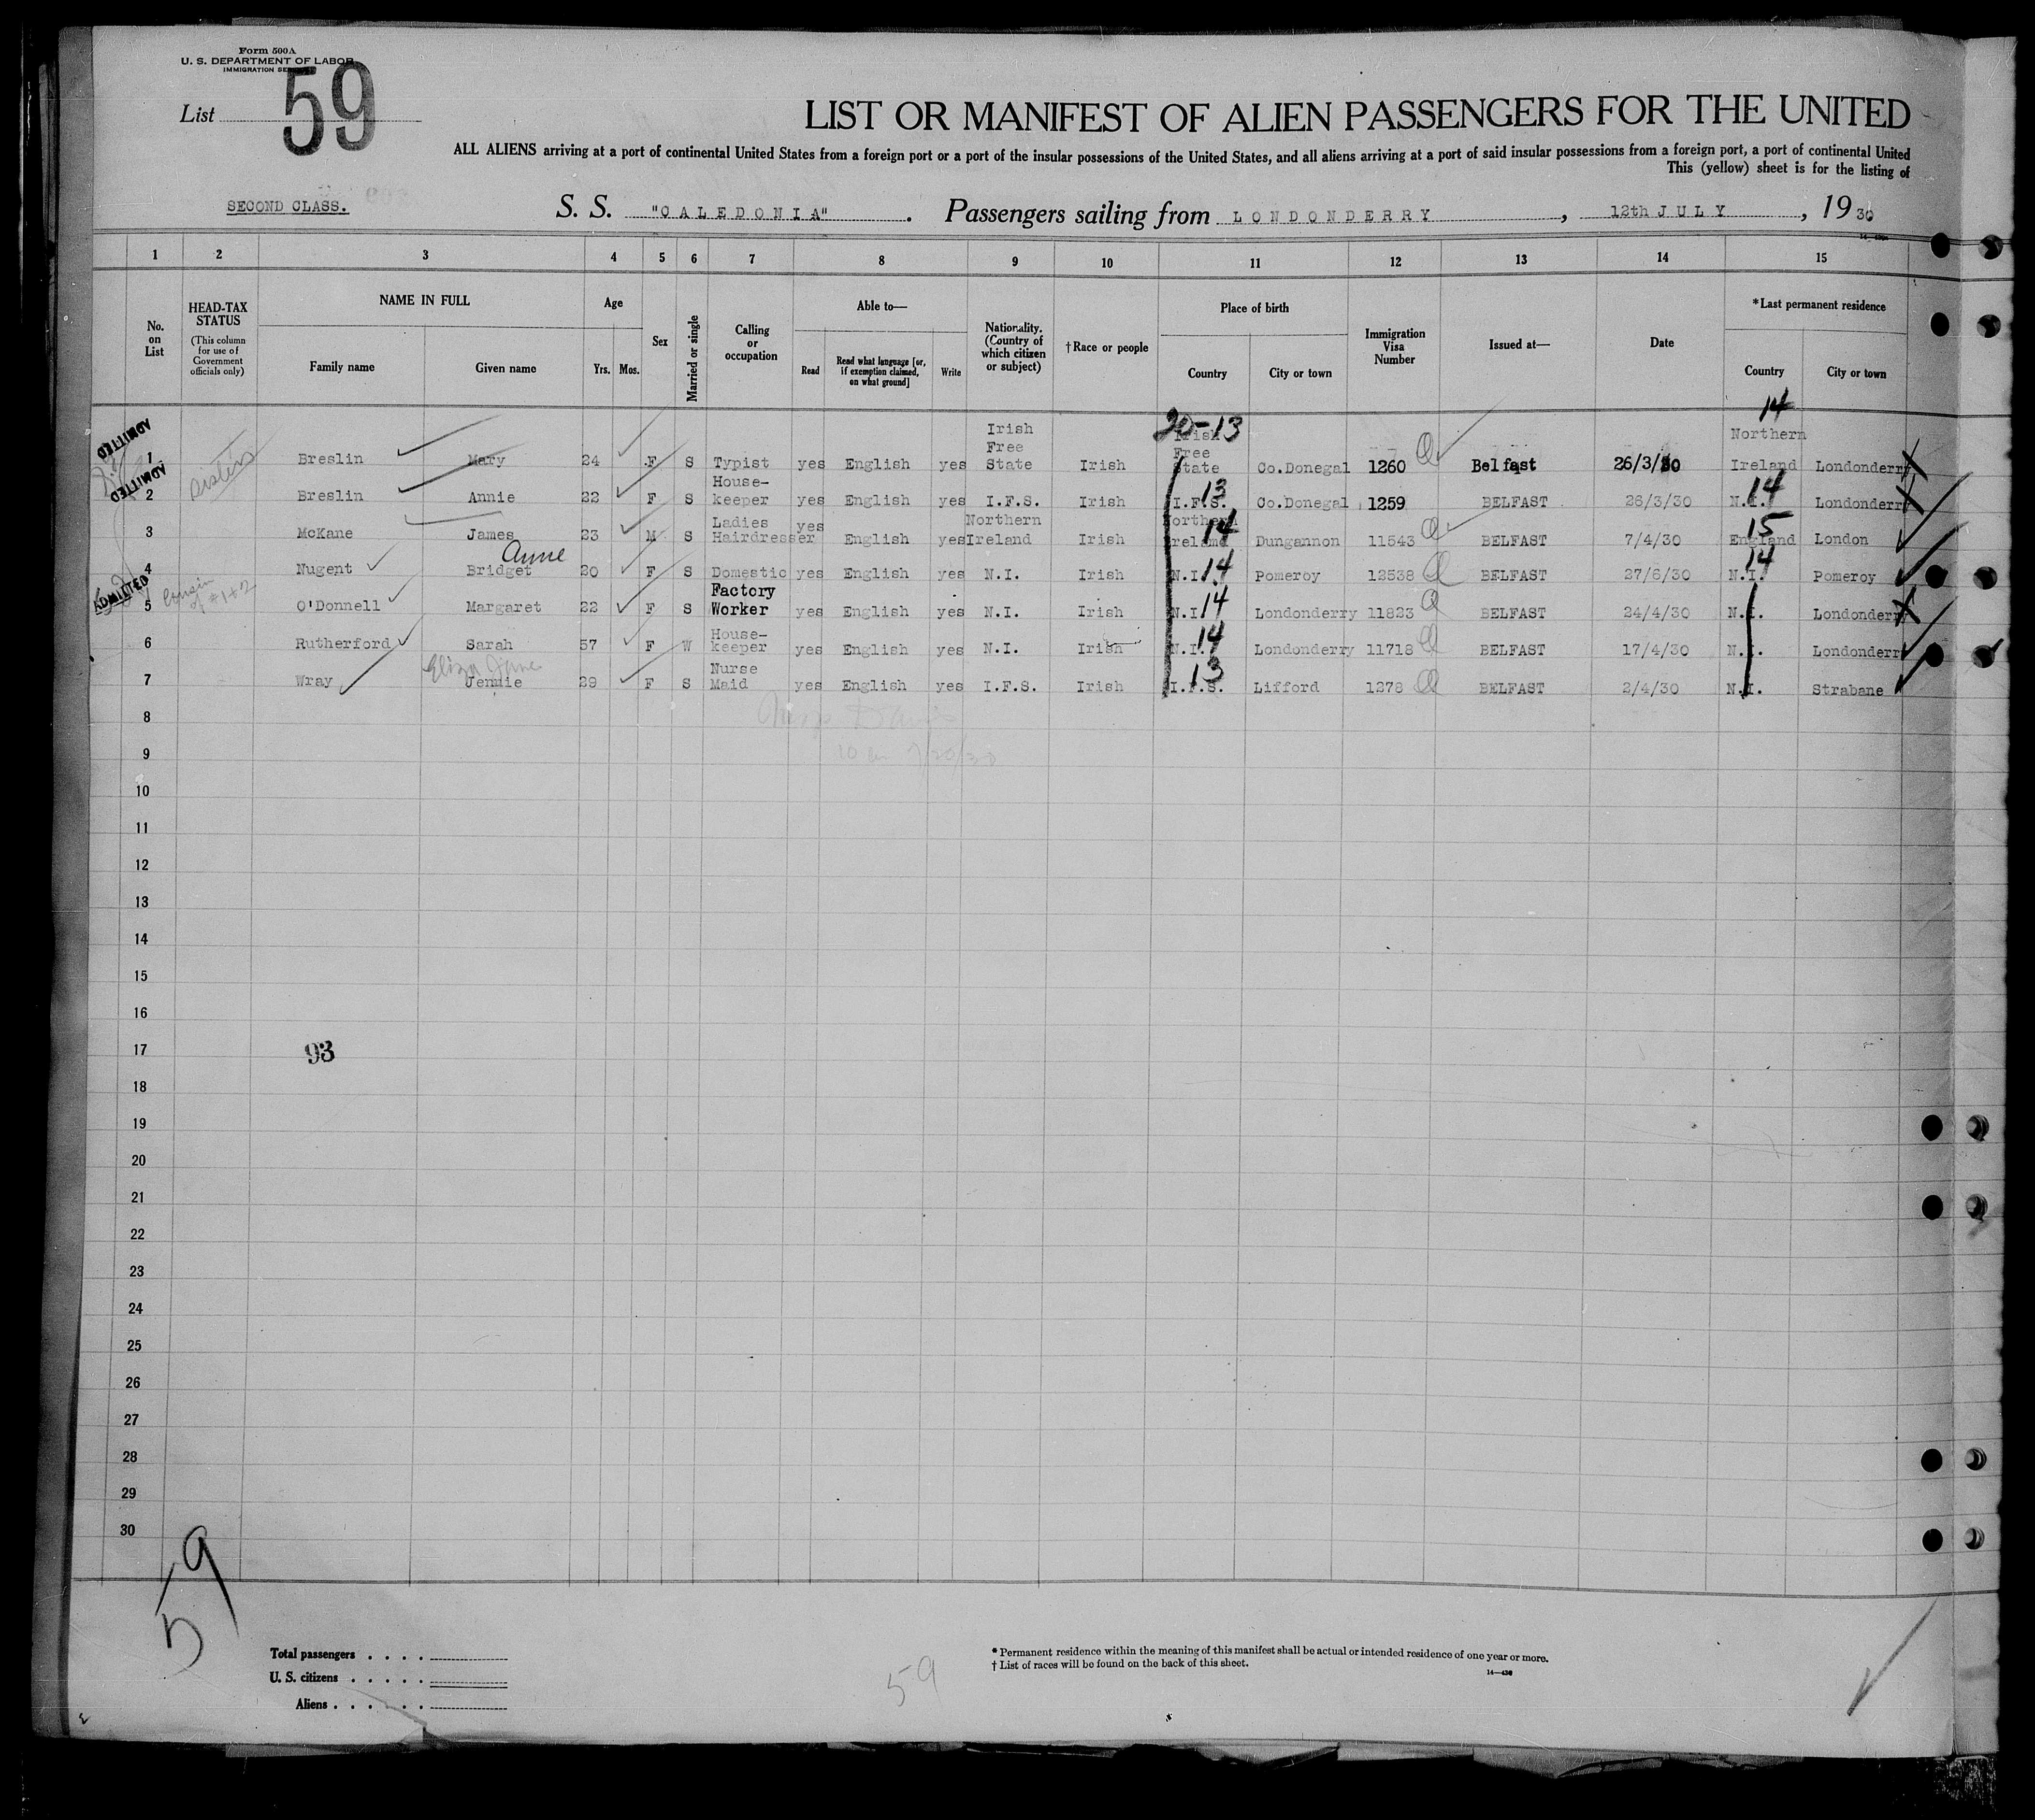 Form 500A
U. S. DEPARTMENT OF LABOR
IMMIGRATION
List 59
LIST OR MANIFEST OF ALIEN PASSENGERS FOR THE UNITED
ALL ALIENS arriving at a port of continental United States from a foreign port or a port of the insular possessions of the United States, and all aliens arriving at a port of said insular possessions from a foreign port, a port of continental United
This (yellow) sheet is for the listing of
SECOND CLASS. S. S. "CALEDONIA". Passengers sailing from LONDONDERRY, 12th JULY, 1930
1 2 3 4 5 6 7 8 9 10 11 12 13 14 15
No. on List
HEAD-TAX STATUS (This column for use of Government officials only)
NAME IN FULL
Family name Given name
Age
Yrs. Mos.
Sex
Married or single
Calling or occupation
Able to—
Read
Read what language [or, if exemption claimed, on what ground]
Write
Nationality. (Country of which citizen or subject)
†Race or people
Place of birth
Country City or town
Immigration Visa Number
Issued at—
Date
*Last permanent residence
Country City or town
ADMITTED
1 sisters Breslin Mary 24 F S Typist yes English yes Irish Free State Irish Irish Free State 20-13 Co.Donegal 1260 Belfast 26/3/30 Northern Ireland 14 Londonderry
ADMITTED
2 Breslin Annie 22 F S House-keeper yes English yes I.F.S. Irish I.F.S. 13 Co.Donegal 1259 BELFAST 26/3/30 N.I. 14 Londonderry
3 McKane James 23 M S Ladies Hairdresser yes English yes Northern Ireland Irish Northern Ireland 14 Dungannon 11543 BELFAST 7/4/30 England 15 London
4 Nugent Bridget Anne 20 F S Domestic yes English yes N.I. Irish N.I. 14 Pomeroy 12538 BELFAST 27/6/30 N.I. 14 Pomeroy
ADMITTED
5 Cousin of #1+2 O'Donnell Margaret 22 F S Factory Worker yes English yes N.I. Irish N.I. 14 Londonderry 11823 BELFAST 24/4/30 N.I. Londonderry
6 Rutherford Sarah 57 F W House-keeper yes English yes N.I. Irish N.I. 14 Londonderry 11718 BELFAST 17/4/30 N.I. Londonderry
7 Wray Eliza Jane Jennie 29 F S Nurse Maid yes English yes I.F.S. Irish I.F.S. 13 Lifford 1278 BELFAST 2/4/30 N.I. Strabane
8
9
10
11
12
13
14
15
16
17 93
18
19
20
21
22
23
24
25
26
27
28
29
30
59
Total passengers . . . .
U. S. citizens . . . . .
Aliens . . . . . .
59
* Permanent residence within the meaning of this manifest shall be actual or intended residence of one year or more.
† List of races will be found on the back of this sheet.
14—430